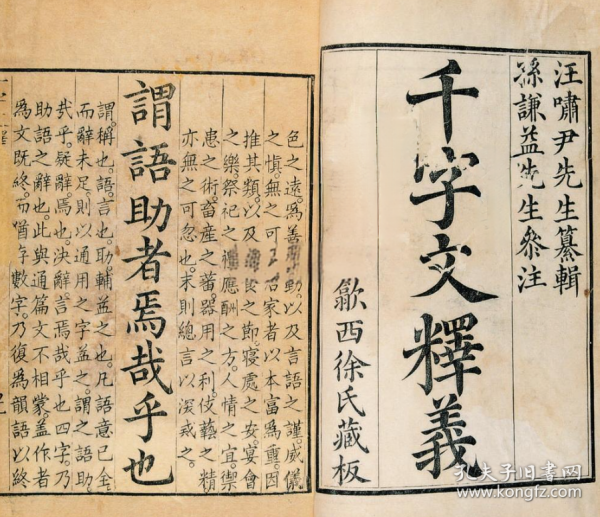 汪嘯尹先生纂輯
孫謙益先生參注
千字文釋義
歙西徐氏藏板
色之遠。為善 動。以及言語之謹。威儀
之慎。無之可 名家者以本富為重。因
推其類。以及 食之節。寢處之安。宴會
之樂。祭祀之 應酬之方。人情之宜。禦
患之術。畜產之蕃。器用之利。伎藝之精
亦無之可忽也。末則總言以深戒之。
謂語助者焉哉乎也
謂。稱也。語。言也。助。輔益之也。凡語意已全
而辭未足。則以通用之字益之。謂之語助。
哉乎。疑辭。焉也。決辭。言焉哉乎也四字。乃
助語之辭也。此與通篇文不相蒙。蓋作者
為文既終。而猶存數字。乃復為韻語以終
孔夫子旧书网
www.kongfz.com